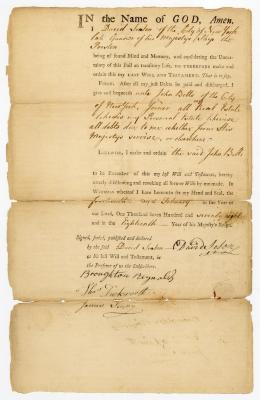 IN the Name of GOD, Amen.
I David Seaton of the City of New York
late Gunner of his Majesty's Ship the
being of sound Mind and Memory, and considering the Uncer-
tainty of this frail and transitory Life, DO THEREFORE make and
ordain this my LAST WILL AND TESTAMENT, That is to say,
FIRST, After all my just Debts be paid and discharged, I
give and bequeath unto John Betts of the City
of New York, all Real Estate
Personal Estate likewise
all debts due to me whether from His
Majesty's Service, or elsewhere.
LIKEWISE, I make and ordain the said John Betts
to be Executor of this my last Will and Testament, hereby
utterly disallowing and revoking all former Wills by me made. IN
WITNESS whereof I have hereunto set my Hand and Seal, the
fourteenth Day of February in the Year of
our Lord, One Thousand seven Hundred and seventy eight
and in the Eighteenth Year of his Majesty's Reign.
Signed, sealed, published and declared
by the said David Seaton
as his last Will and Testament,
in the Presence of us the Subscribers,
Broughton Reynolds
Thos Duckworth
James